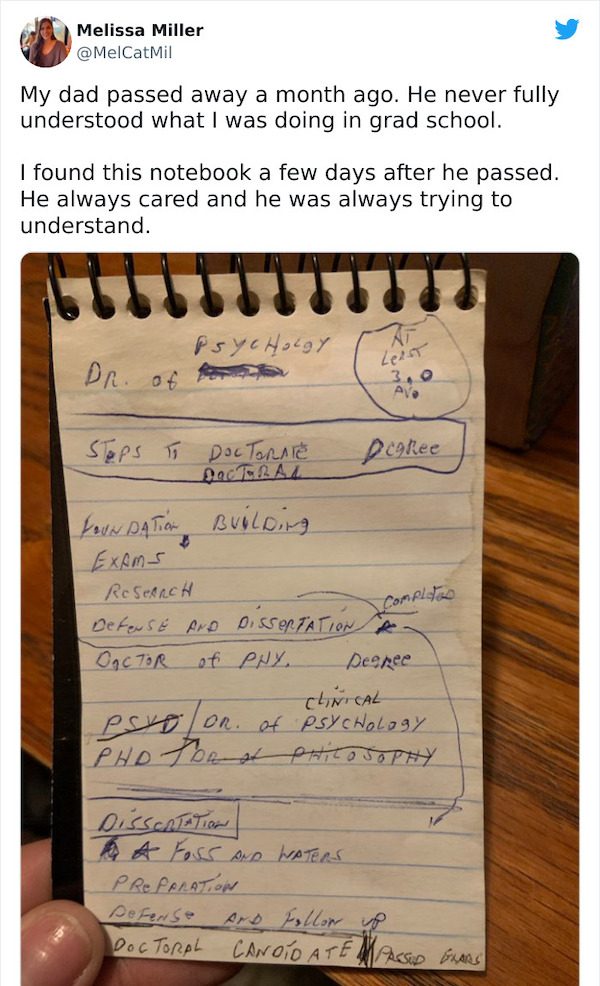 Melissa Miller
@MelCatMil
My dad passed away a month ago. He never fully
understood what I was doing in grad school.
I found this notebook a few days after he passed.
He always cared and he was always trying to
understand.
PSYCHOLOGY
DR. of
AT
LEAST
3.0
AV.
STEPS TO DOCTORATE DEGREE
DOCTORAL
FOUNDATION BUILDING
EXAMS
RESEARCH
COMPLETED
DEFENSE AND DISSERTATION
DOCTOR of PHY. DEGREE
CLINICAL
PSYD / DR. of PSYCHOLOGY
PHD / DR of PHILOSOPHY
DISSERTATION
FOSS AND WATERS
PREPARATION
DEFENSE AND FOLLOW UP
DOCTORAL CANDIDATE PASSED